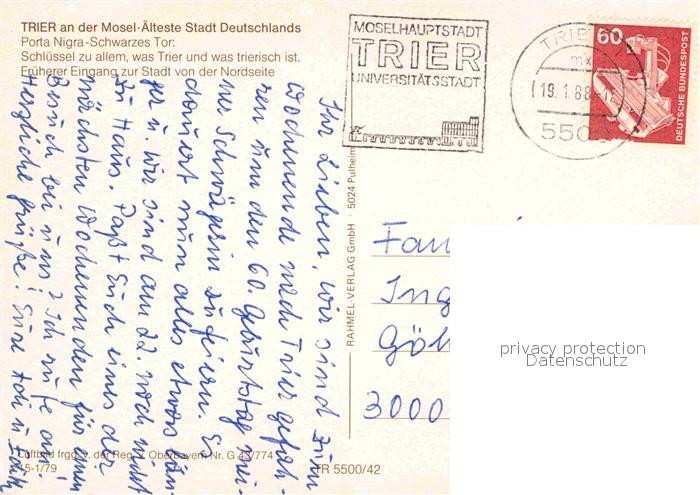 TRIER an der Mosel·Älteste Stadt Deutschlands
Porta Nigra-Schwarzes Tor:
Schlüssel zu allem, was Trier und was trierisch ist.
Früherer Eingang zur Stadt von der Nordseite
MOSELHAUPTSTADT
TRIER
UNIVERSITÄTSSTADT
TRIER
mx
19.1.88
5500
60
DEUTSCHE BUNDESPOST
Ihr Lieben, wir sind zum
Wochenende nach Trier gefah-
ren um den 60. Geburtstag mei-
ner Schwägerin zu feiern. Es
dauert nun alles etwas län-
ger u. wir sind am 22. noch nicht
zu Haus. Paßt Euch eines der
nächsten Wochenenden für einen
Besuch bei uns? Ich rufe an.
Herzliche Grüße! Eure
RAHMEL-VERLAG GmbH · 5024 Pulheim
Fam
Ing
Göh
3000
privacy protection
Datenschutz
Luftbild frgg. v. der Reg. v. Oberbayern Nr. G 43/774
15-1/79
TR 5500/42